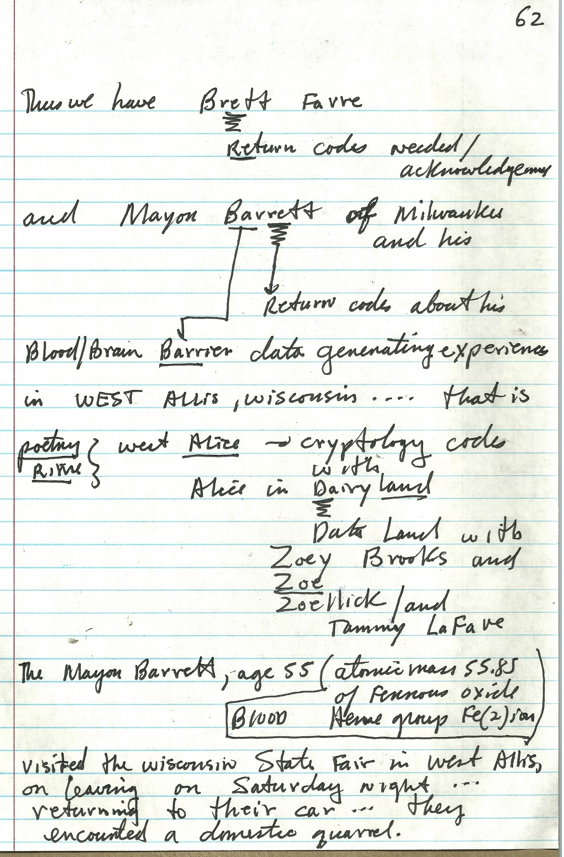 62
Thus we have Brett Favre
Return codes needed/
acknowledgemen
and Mayor Barrett of Milwaukee
and his
Return codes about his
Blood/Brain Barrier data generating experience
in WEST ALLIS, WISCONSIN .... that is
poetry } west Alice → cryptology codes
Rime
with
Alice in Dairy land
Data Land with
Zoey Brooks and
Zoe
Zoellick/and
Tammy LaFave
The Mayor Barrett, age 55 (atomic mass 55.85
of Ferrous oxide
Blood Heme group Fe(2) ion)
visited the wisconsin State Fair in West Allis,
on leaving on Saturday night ...
returning to their car ... they
encounted a domestic quarrel.